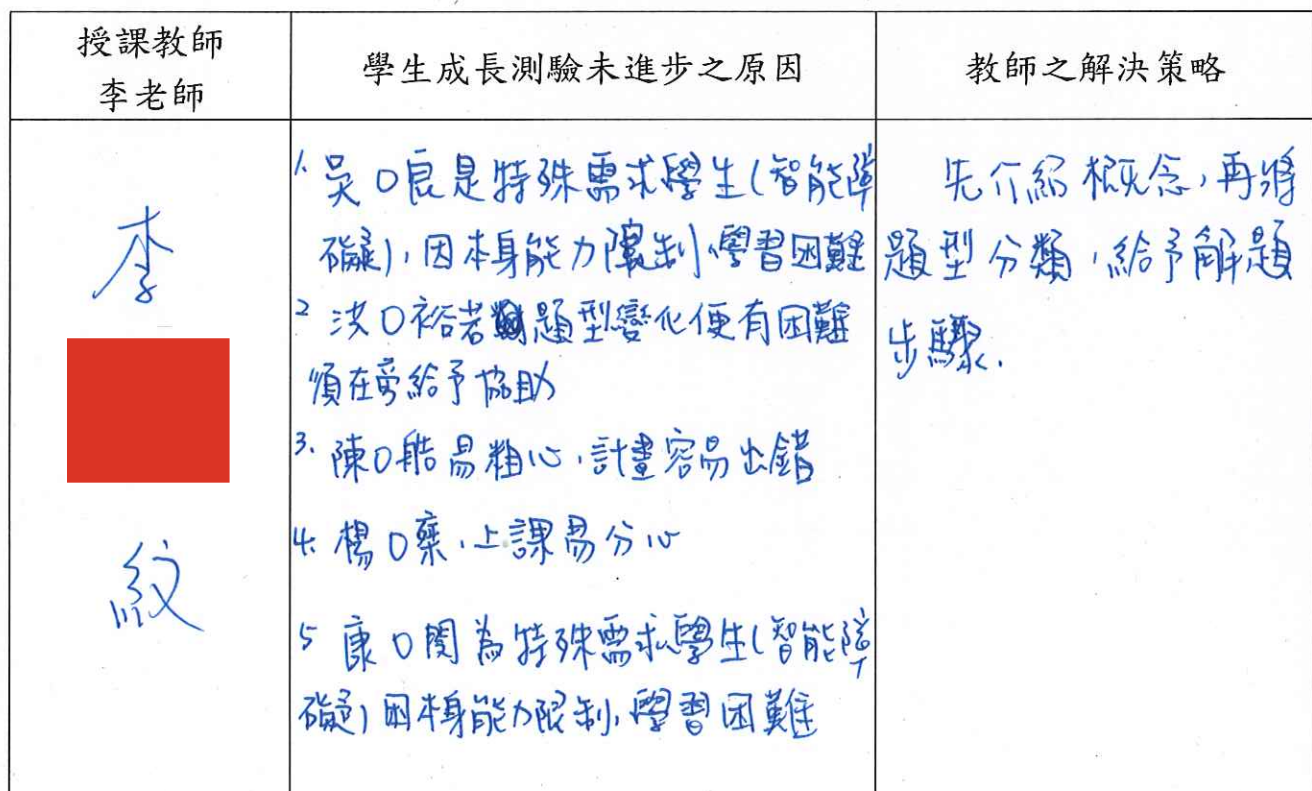 授課教師
李老師
學生成長測驗未進步之原因
教師之解決策略
李
紋
1. 吳O良是特殊需求學生(智能障
礙), 因本身能力限制, 學習困難
2 洪O裕若題型變化便有困難
須在旁給予協助
3. 陳O皓易粗心, 計畫容易出錯
4. 楊O棻, 上課易分心
5 康O閔為特殊需求學生(智能障
礙) 因本身能力限制, 學習困難
先介紹概念, 再將
題型分類, 給予解題
步驟.